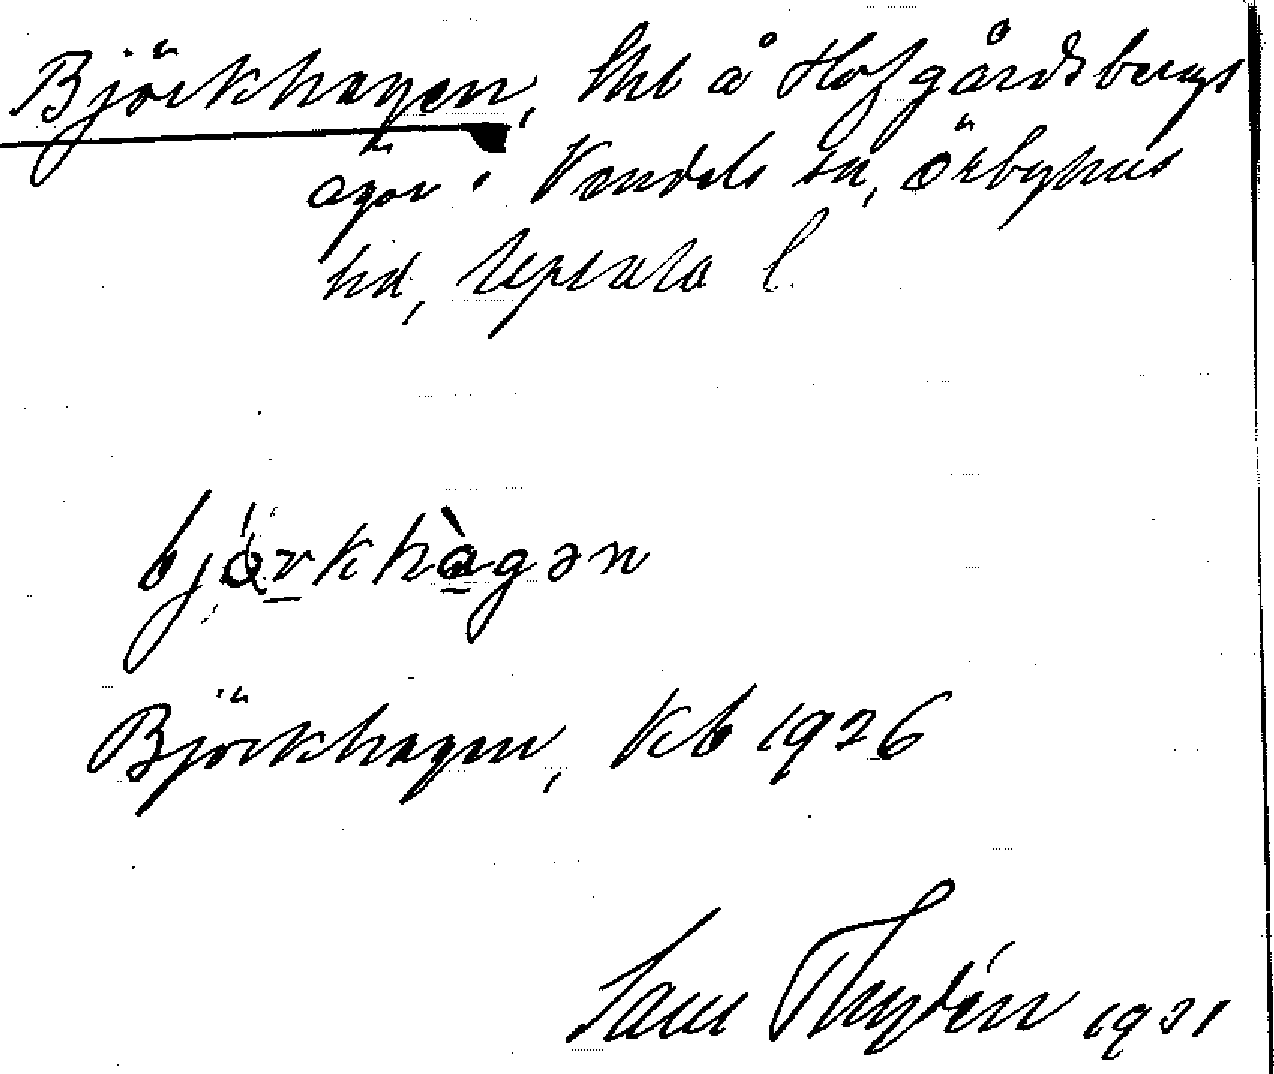 Björkhagen, Shl å Hofgårdsbergs
ägor i Vendels sn, Örbyhus
hd, Upsala l.
bjö̀rkhàgən
Björkhagen, Kb 1926
Thydén 1931